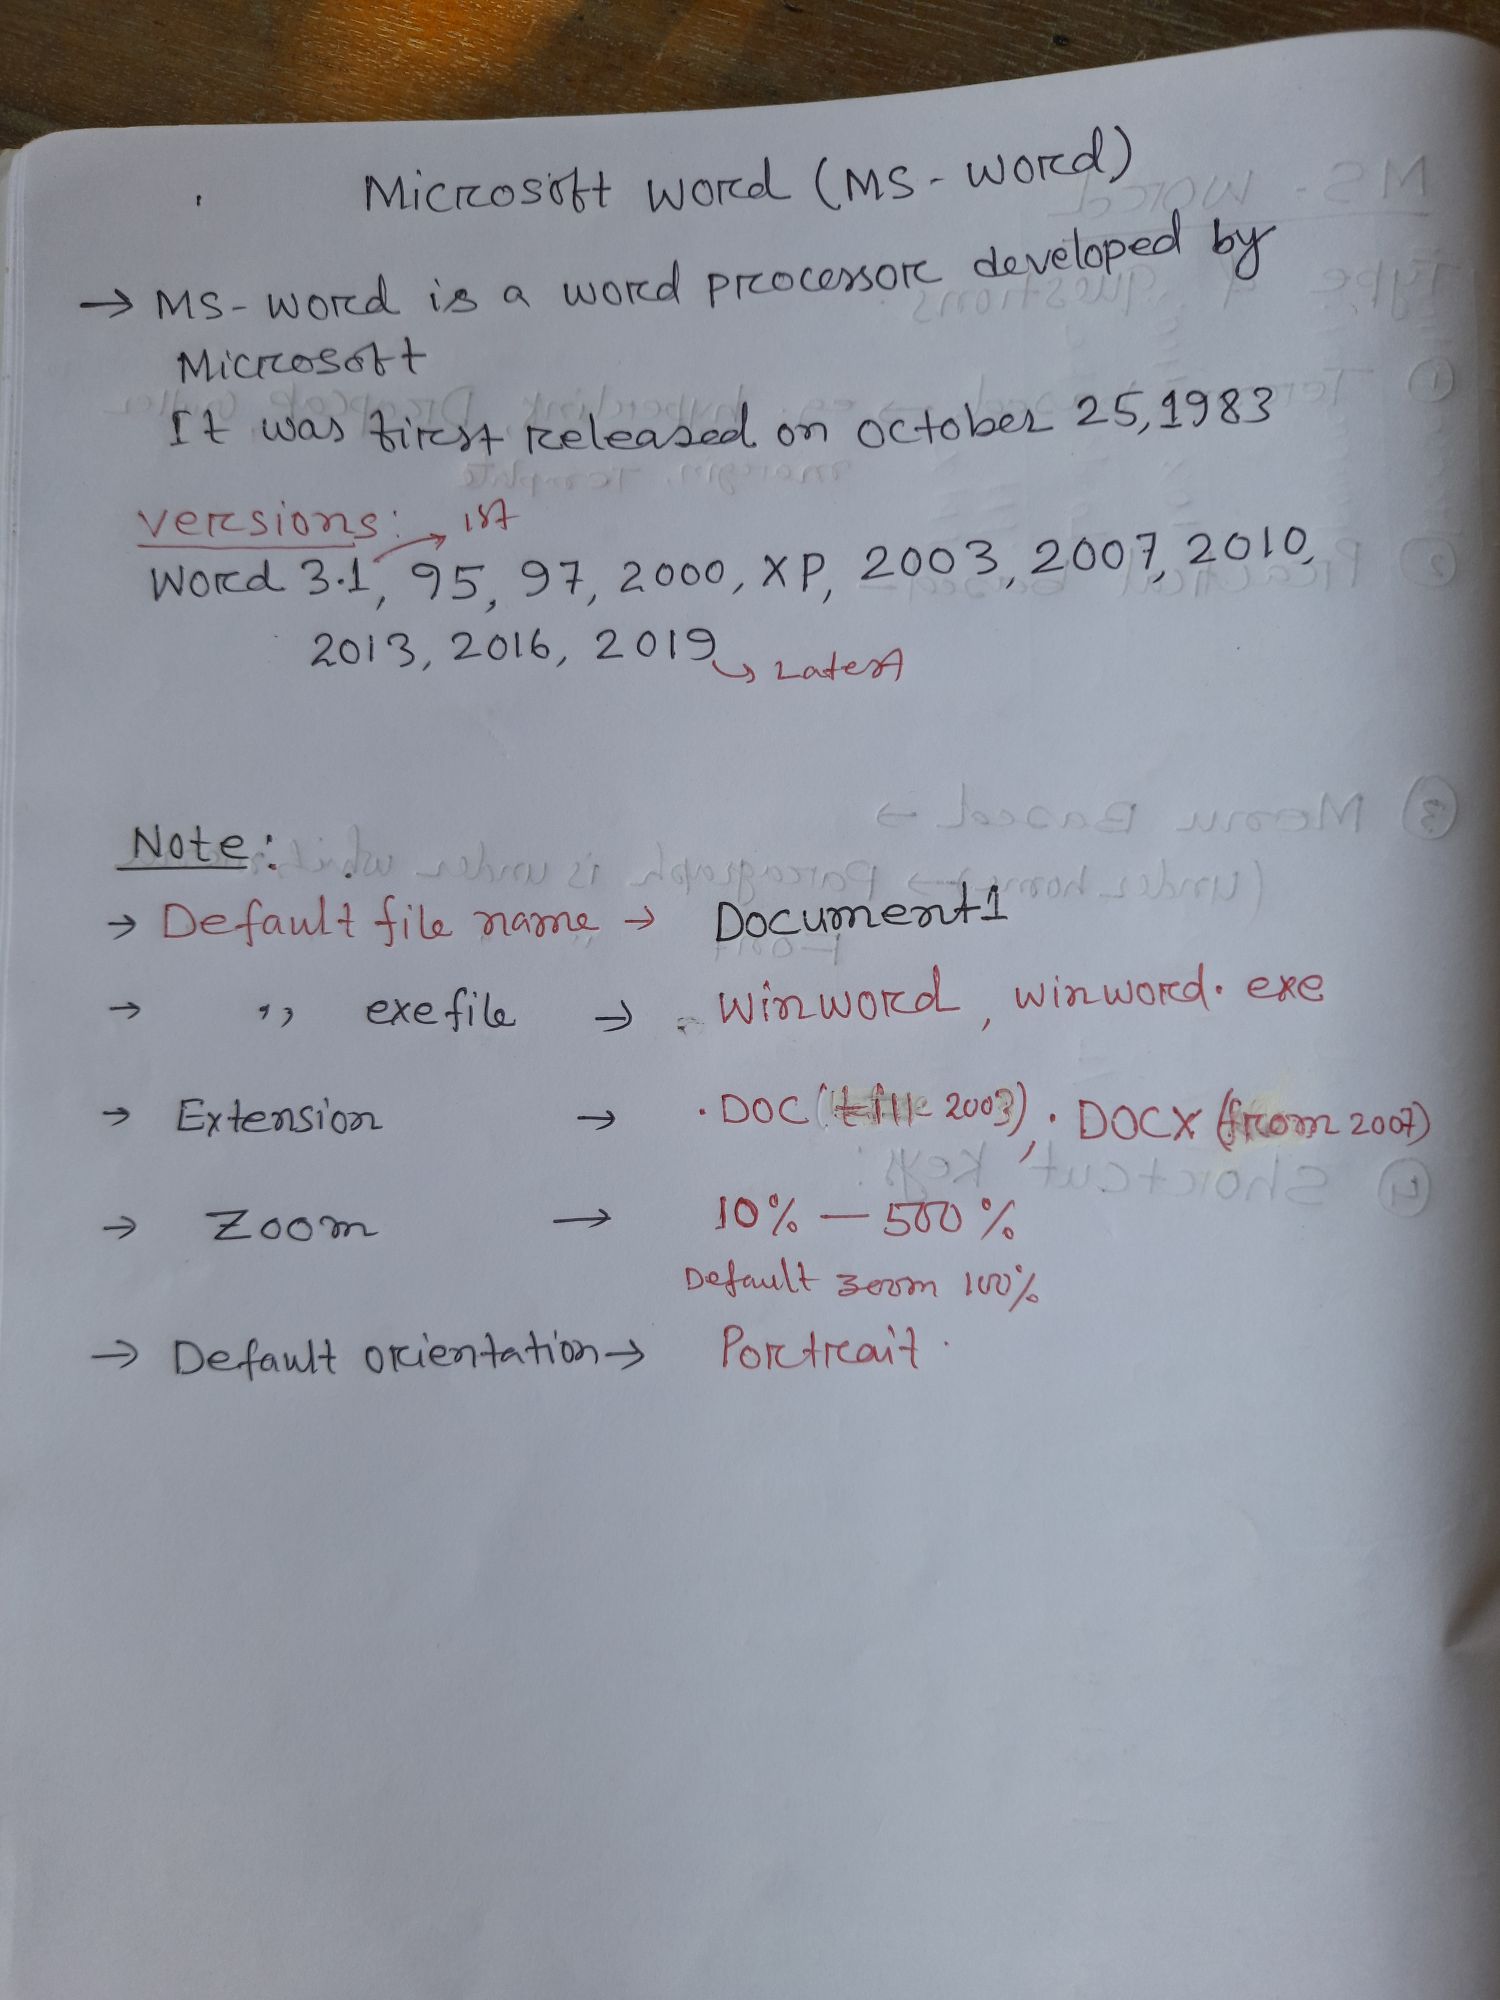 Microsoft word (MS-word)
→ MS-word is a word processor developed by
Microsoft
It was first released on october 25,1983
versions: → 1st
Word 3.1, 95, 97, 2000, XP, 2003, 2007, 2010,
2013, 2016, 2019 → Latest
Note:
→ Default file name → Document1
→ ,, exe file → winword, winword.exe
→ Extension → .DOC (till 2003), .DOCX (from 2007)
→ Zoom → 10% — 500%
Default zoom 100%
→ Default orientation → Portrait.